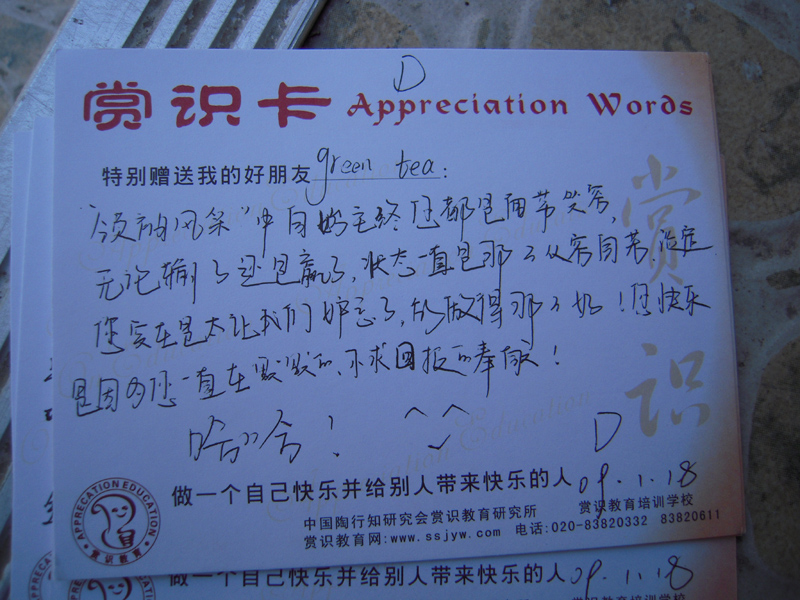 D
赏识卡 Appreciation Words
特别赠送我的好朋友 green tea:
"领袖风采"中自始至终您都是面带笑容,
无论输了还是赢了,状态一直是那么从容自若、淡定
您实在是太让我们妒忌了,能做得那么好!您快乐
是因为您一直在默默的、不求回报的奉献!
哈哈!
赏识
D
做一个自己快乐并给别人带来快乐的人 09.1.18
中国陶行知研究会赏识教育研究所 赏识教育培训学校
赏识教育网:www.ssjyw.com 电话:020-83820332 83820611
APPRECATION EDUCATION
赏识教育
做一个自己快乐并给别人带来快乐的人 09.1.18
赏识教育培训学校